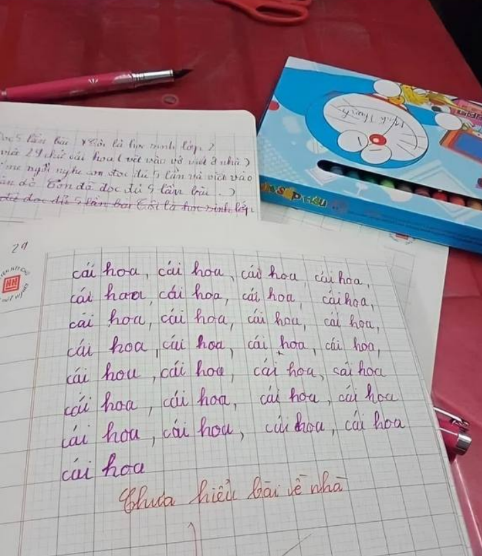 Đọc 5 lần bài : Tôi là học sinh lớp 2
viết 29 chữ cái hoa (viết vào vở viết ở nhà)
đọc đủ 5 lần bài Tôi là học sinh lớp
29
cái hoa, cái hoa, cái hoa, cái hoa,
cái hoa, cái hoa, cái hoa, cái hoa,
cái hoa, cái hoa, cái hoa, cái hoa,
cái hoa, cái hoa, cái hoa, cái hoa,
cái hoa, cái hoa, cái hoa, cái hoa
cái hoa, cái hoa, cái hoa, cái hoa
cái hoa, cái hoa, cái hoa, cái hoa
cái hoa
Chưa hiểu bài về nhà